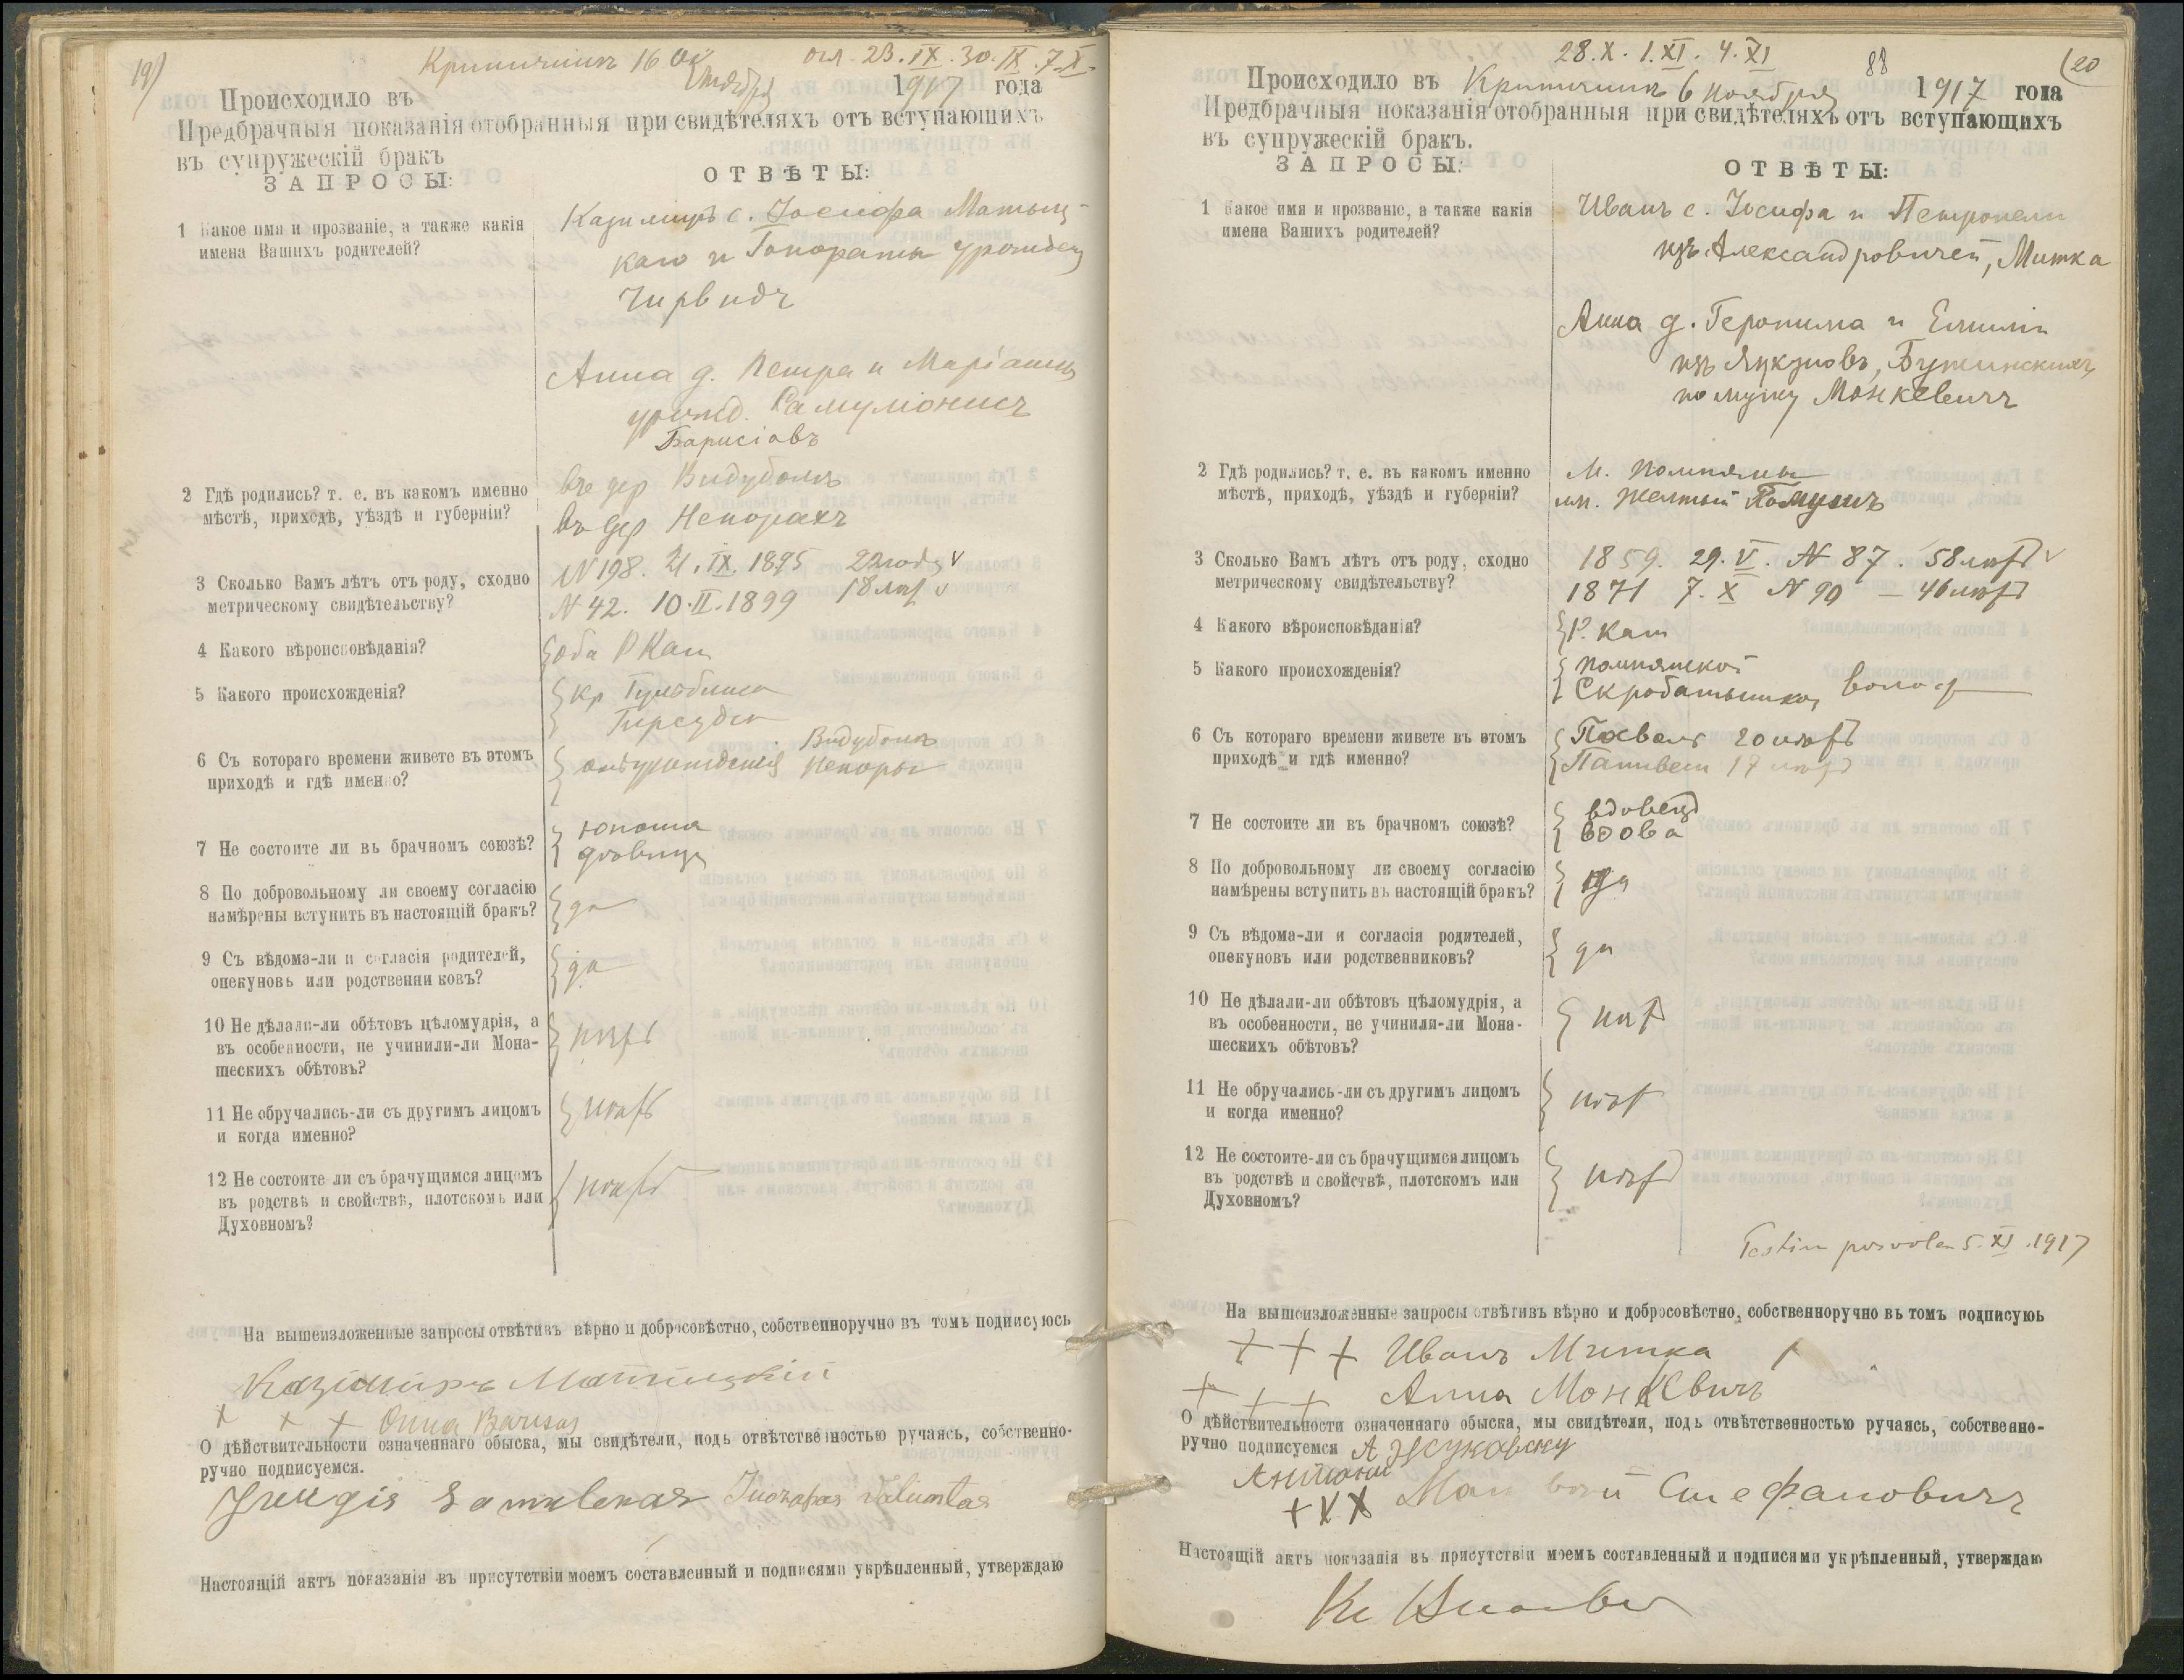 19)
Криничинъ 16 Ок
тября
огл. 23.IX.30.IX.7.X.
Происходило въ 1917 года
Предбрачныя показанія отобранныя при свидѣтеляхъ отъ вступающихъ
въ супружескій бракъ
ЗАПРОСЫ: ОТВѢТЫ:
1 Какое имя и прозваніе, а также какія
имена Вашихъ родителей?
Казимиръ с. Іосифа Матыц-
каго и Гонораты урожден
Чирвидъ
Анна д. Петра и Маріанны
урожд. Рамуліонисъ
Барисіовъ
2 Гдѣ родились? т. е. въ какомъ именно
мѣстѣ, приходѣ, уѣздѣ и губерніи?
въ дер Видуболь
въ дер Непорахъ
3 Сколько Вамъ лѣтъ отъ роду, сходно
метрическому свидѣтельству?
N 198. 21.IX.1895 22 года v
N 42. 10.II.1899 18 лѣт v
4 Какого вѣроисповѣданія?
оба Р Кат
5 Какого происхожденія?
кр
6 Съ котораго времени живете въ этомъ
приходѣ и гдѣ именно?
отъ урожденія Видуболь
Непоры
7 Не состоите ли въ брачномъ союзѣ?
юноша
дѣвица
8 По добровольному ли своему согласію
намѣрены вступить въ настоящій бракъ?
да
9 Съ вѣдома-ли и согласія родителей,
опекуновъ или родственни ковъ?
да
10 Не дѣлали-ли обѣтовъ цѣломудрія, а
въ особенности, не учинили-ли Мона-
шескихъ обѣтовъ?
нѣтъ
11 Не обручались-ли съ другимъ лицомъ
и когда именно?
нѣтъ
12 Не состоите ли съ брачущимся лицомъ
въ родствѣ и свойствѣ, плотскомъ или
Духовномъ?
нѣтъ
На вышеизложенные запросы отвѣтивъ вѣрно и добросовѣстно, собственноручно въ томъ подписуюсь
Казимиръ Матицкій
+ + + Onna Barisas
О дѣйствительности означеннаго обыска, мы свидѣтели, подъ отвѣтственностью ручаясь, собственно-
ручно подписуемся.
Jurgis
Настоящій актъ показанія въ присутствіи моемъ составленный и подписями укрѣпленный, утверждаю
28.X. 1.XI. 4.XI
88 (20
Происходило въ Криничинъ 6 ноября 1917 года
Предбрачныя показанія отобранныя при свидѣтеляхъ отъ вступающихъ
въ супружескій бракъ.
ЗАПРОСЫ: ОТВѢТЫ:
1 Какое имя и прозваніе, а также какія
имена Вашихъ родителей?
Иванъ с. Іосифа и Петронели
изъ Александровичей, Митка
Анна д. Геронима и Емиліи
изъ Янкуновъ, Бужинскихъ,
по мужу Монкевичъ
2 Гдѣ родились? т. е. въ какомъ именно
мѣстѣ, приходѣ, уѣздѣ и губерніи?
м. Помпяны
им. Желтый Помушъ
3 Сколько Вамъ лѣтъ отъ роду, сходно
метрическому свидѣтельству?
1859. 29.V. N 87. 58 лѣтъ v
1871 7.X N 90 — 46 лѣтъ
4 Какого вѣроисповѣданія?
Р. Кат
5 Какого происхожденія?
Помпянской
Скробатышкой волос
6 Съ котораго времени живете въ этомъ
приходѣ и гдѣ именно?
20 лѣтъ
17 лѣтъ
7 Не состоите ли въ брачномъ союзѣ?
вдовецъ
вдова
8 По добровольному ли своему согласію
намѣрены вступить въ настоящій бракъ?
да
9 Съ вѣдома-ли и согласія родителей,
опекуновъ или родственниковъ?
да
10 Не дѣлали-ли обѣтовъ цѣломудрія, а
въ особенности, не учинили-ли Мона-
шескихъ обѣтовъ?
нѣтъ
11 Не обручались-ли съ другимъ лицомъ
и когда именно?
нѣтъ
12 Не состоите-ли съ брачущимся лицомъ
въ родствѣ и свойствѣ, плотскомъ или
Духовномъ?
нѣтъ
5.XI.1917
На вышеизложенные запросы отвѣтивъ вѣрно и добросовѣстно, собственноручно въ томъ подписуюь
+ + + Иванъ Митка
+ + + Анна Монкевичъ
О дѣйствительности означеннаго обыска, мы свидѣтели, подъ отвѣтственностью ручаясь, собственно-
ручно подписуемся
+ X X Матвей Стефановичъ
Настоящій актъ показанія въ присутствіи моемъ составленный и подписями укрѣпленный, утверждаю